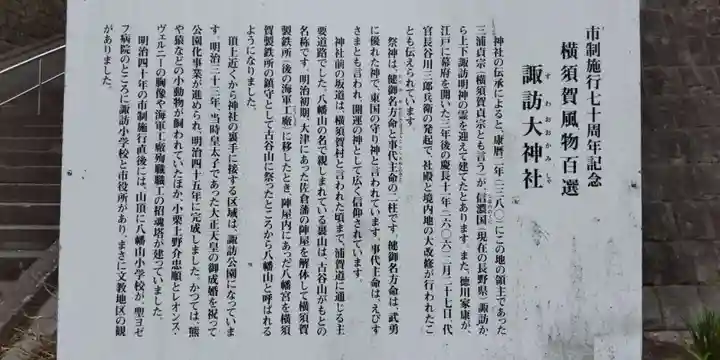 市制施行七十周年記念
横須賀風物百選
諏訪大神社
すわおおかみしゃ
神社の伝承によると、康暦二年(一三八〇)にこの地の領主であった
三浦貞宗(横須賀貞宗とも言う)が、信濃国(現在の長野県)諏訪か
ら上下諏訪明神の霊を迎えて建てたとあります。また、徳川家康が、
江戸に幕府を開いた三年後の慶長十一年(一六〇六)二月二十七日、代
官長谷川三郎兵衛の発起で、社殿と境内地の大改修が行われたこ
とも伝えられています。
祭神は、健御名方命と事代主命の二柱です。健御名方命は、武勇
に優れた神で、東国の守り神と言われています。事代主命は、えびす
さまとも言われ、開運の神として広く信仰されています。
神社前の坂道は、横須賀村と言われた頃まで、浦賀道に通じる主
要道路でした。八幡山の名で親しまれている裏山は、古谷山がもとの
名称です。明治初期、大津にあった佐倉藩の陣屋を解体して横須賀
製鉄所(後の海軍工廠)に移したとき、陣屋内にあった八幡宮を横須
賀製鉄所の鎮守として古谷山に祭ったところから八幡山と呼ばれる
ようになりました。
頂上近くから神社の裏手に接する区域は、諏訪公園になっていま
す。明治三十三年、当時皇太子であった大正天皇の御成婚を祝って
公園化事業が進められ、明治四十五年に完成しました。かつては、熊
や猿などの小動物が飼われていたほか、小栗上野介忠順とレオンス・
ヴェルニーの胸像や海軍工廠殉職職工の招魂塔が建っていました。
明治四十年の市制施行直後には、山頂に八幡山小学校が、聖ヨゼ
フ病院のところに諏訪小学校と市役所があり、まさに文教地区の観
がありました。